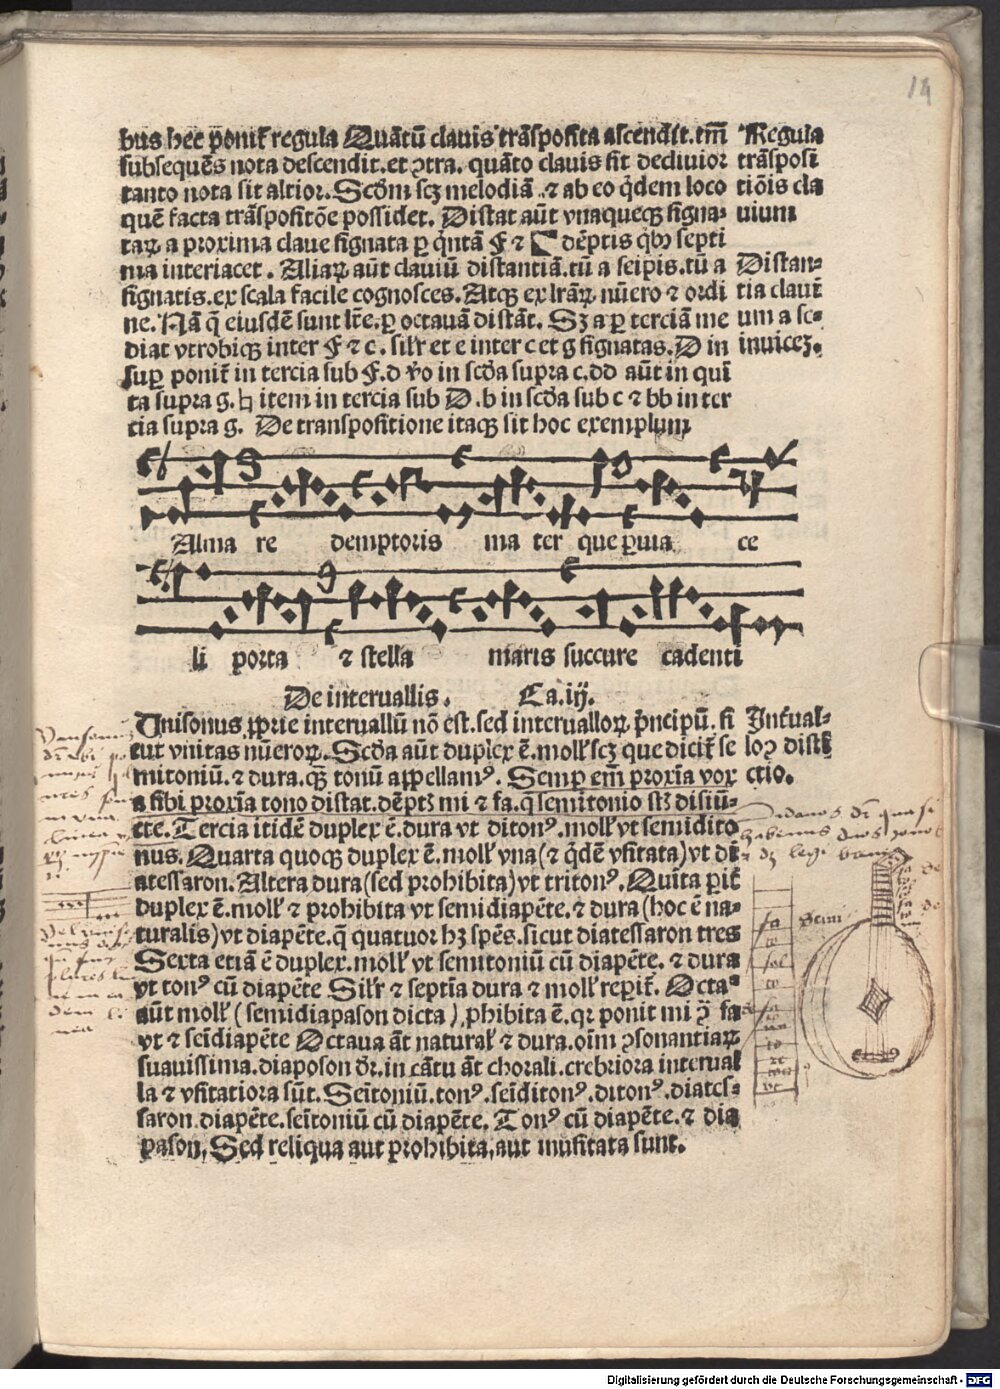 14
bus hec ponit̃ regula Quãtũ clauis trãsposita ascendit.tm̃
subsequẽs nota descendit.et ꝯtra. quãto clauis fit decliuior
tanto nota sit altior. Scđm scꝫ melodiã ⁊ ab eo q̇dem loco
quẽ facta trãspositõe possidet. Distat aũt vnaqueqꝫ signa⸗
taꝝ a proxima claue signata ꝑ q̇ntã F ⁊ Γ dẽptis q̇bꝰ septi
ma interiacet. Aliaꝝ aũt clauiũ distantiã.tũ a seipis.tũ a
signatis.ex scala facile cognosces. Atqꝫ ex lr̃aꝝ nũero ⁊ ordi
ne. Nã q̃ eiusdẽ sunt lr̃e.ꝑ octauã distãt. Sꝫ a ꝑ terciã me
diat vtrobiqꝫ inter F ⁊ c. sil̃r et e inter c et g signatas. D in
suꝑ ponit̃ in tercia sub F.d v̊o in scđa supra c.dd aũt in quĩ
ta supra g. ♮ item in tercia sub D.b in scđa sub c ⁊ bb in ter
tia supra g. De transpositione itaqꝫ sit hoc exemplum
Regula
trãsposi
tiõis cla
uium
Distan⸗
tia clauiũ
um a se⸗
inuicẽ.
Alma re demptoris ma ter que ꝑuia ce
li porta ⁊ stella maris succure cadenti
De interuallis. Ca.iij.
Unisonus ꝓprie interuallũ nõ est.sed interualloꝝ p̃ncipũ. si
cut vnitas nũeroꝝ. Scđa aũt duplex ẽ.moll̃ scꝫ que dicit̃ se
mitoniũ.⁊ dura.qꝫ tonũ appellamꝰ. Semꝑ em̃ proxĩa vox
a sibi proxĩa tono distat.dẽptꝫ mi ⁊ fa.q̃ semitonio stꝫ disiũ⸗
cte. Tercia itidẽ duplex ẽ.dura vt ditonꝰ.moll̃ vt semidito
nus. Quarta quoqꝫ duplex ẽ.moll̃ vna(⁊ q̇dẽ vsitata)vt di
atessaron. Altera dura(sed prohibita)vt tritonꝰ. Quĩta ꝑit̃
duplex ẽ.moll̃ ⁊ prohibita vt semidiapẽte.⁊ dura(hoc ẽ na⸗
turalis)vt diapẽte.q̃ quatuor hꝫ spẽs.sicut diatessaron tres
Sexta etiã ẽ duplex.moll̃ vt semitoniũ cũ diapẽte. ⁊ dura
vt tonꝰ cũ diapẽte Sil̃r ⁊ septĩa dura ⁊ moll̃ reꝑit̃. Octaᵃ
aũt moll̃ (semidiapason dicta) ꝓhibita ẽ.qꝛ ponit mi ꝯ̃ fa
vt ⁊ sẽidiapẽte Octaua ãt natural̃ ⁊ dura.oĩm ꝯsonantiaꝝ
suauissima.diaposon dr̃.in cãtu ãt chorali.crebriora interual
la ⁊ vsitatiora sũt. Sẽitoniũ.tonꝰ.sẽiditonꝰ.ditonꝰ.diates⸗
saron.diapẽte.sẽitoniũ cũ diapẽte. Tonꝰ cũ diapẽte.⁊ dia
pason. Sed reliqua aut prohibita,aut inusitata sunt.
Int̃ual⸗
loꝝ disti
ctio.
fa
sol
fa
re
vt
Digitalisierung gefördert durch die Deutsche Forschungsgemeinschaft - DFG